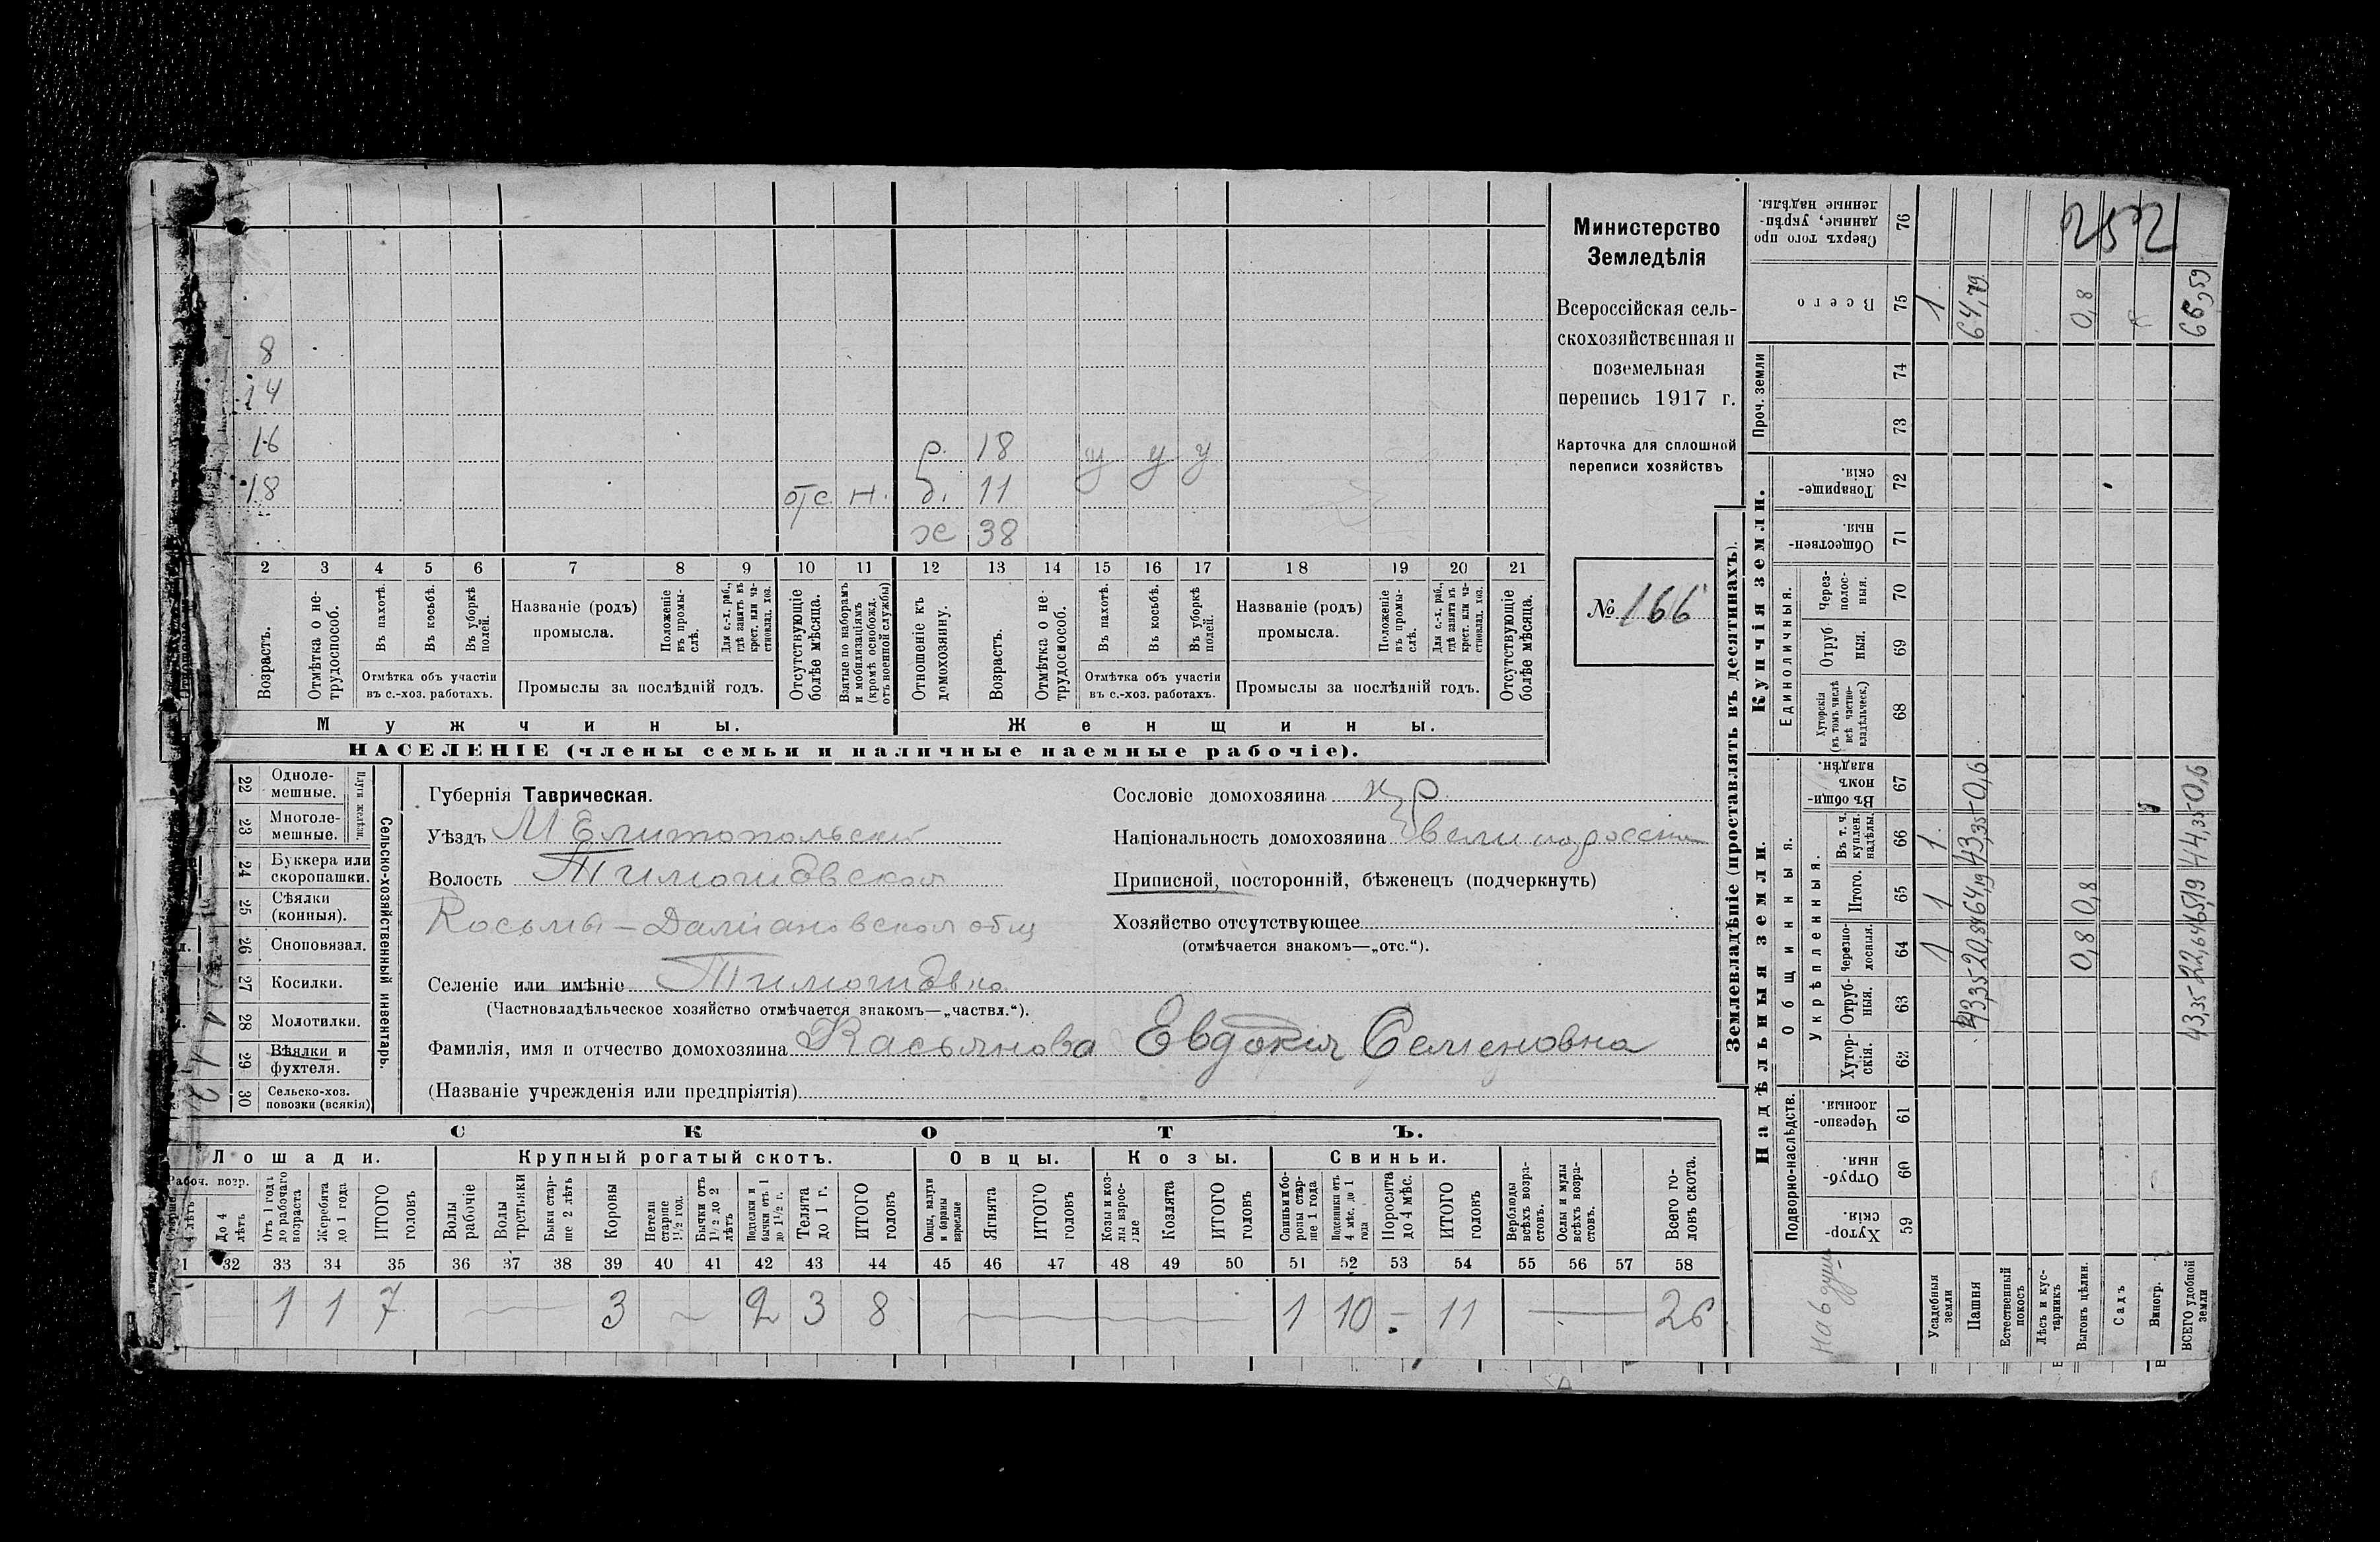 8
14
16
р. 18 у у у
18
отс н. д. 11
ж 38
2 3 4 5 6 7 8 9 10 11 12 13 14 15 16 17 18 19 20 21
Возрастъ.
Отмѣтка о не-
трудоспособ.
Въ пахотѣ.
Въ косьбѣ.
Въ уборкѣ
полей.
Отмѣтка объ участіи
въ с.-хоз. работахъ.
Названіе (родъ)
промысла.
Положеніе
въ промы-
слѣ.
Для с.-х. раб.,
гдѣ занятъ въ
крест. или ча-
стновлад. хоз.
Промыслы за послѣдній годъ.
Отсутствующіе
болѣе мѣсяца.
Взятые по наборамъ
и мобилизаціямъ
(кромѣ освобожд.
отъ военной службы)
Отношеніе къ
домохозяину.
Возрастъ.
Отмѣтка о не-
трудоспособ.
Въ пахотѣ.
Въ косьбѣ.
Въ уборкѣ
полей.
Отмѣтка объ участіи
въ с.-хоз. работахъ.
Названіе (родъ)
промысла.
Положеніе
въ промы-
слѣ.
Для с.-х. раб.,
гдѣ занята въ
крест. или ча-
стновлад. хоз.
Промыслы за послѣдній годъ.
Отсутствующіе
болѣе мѣсяца.
Мужчины. Женщины.
НАСЕЛЕНІЕ (члены семьи и наличные наемные рабочіе).
Министерство
Земледѣлія
Всероссійская сель-
скохозяйственная и
поземельная
перепись 1917 г.
Карточка для сплошной
переписи хозяйствъ
№ 166
22 Одноле-
мешные.
23 Многоле-
мешные.
Плуги желѣзн.
24 Буккера или
скоропашки.
25 Сѣялки
(конныя).
26 Сноповязал.
27 Косилки.
28 Молотилки.
29 Вѣялки и
фухтеля.
30 Сельско-хоз.
повозки (всякія)
Сельско-хозяйственный инвентарь.
Губернія Таврическая.
Уѣздъ Мелитопольскій
Волость Тимошовская
Косьмы-Даміановское общ
Селеніе или имѣніе Тимошовка
(Частновладѣльческое хозяйство отмѣчается знакомъ—„частвл.“).
Фамилія, имя и отчество домохозяина Касьянова Евдокія Семеновна
(Названіе учрежденія или предпріятія)
Сословіе домохозяина кр.
Національность домохозяина великоросска
Приписной, посторонній, бѣженецъ (подчеркнуть)
Хозяйство отсутствующее
(отмѣчается знакомъ—„отс.“).
СКОТЪ.
Лошади. Крупный рогатый скотъ. Овцы. Козы. Свиньи.
Рабоч. возр.
До 4
лѣтъ
Отъ 1 года
до рабочаго
возраста
Жеребята
до 1 года
ИТОГО
головъ
Волы
рабочіе
Волы
третьяки
Быки стар-
ше 2 лѣтъ
Коровы
Нетели
старше
1½ год.
Бычки отъ
1½ до 2
лѣтъ
Подтелки и
бычки отъ 1
до 1½ г.
Телята
до 1 г.
ИТОГО
головъ
Овцы, валухи
и бараны
взрослые
Ягнята
ИТОГО
головъ
Козы и коз-
лы взрос-
лые
Козлята
ИТОГО
головъ
Свиньи и бо-
ровы стар-
ше 1 года
Подсвинки отъ
4 мѣс. до 1
года
Поросята
до 4 мѣс.
ИТОГО
головъ
Верблюды
всѣхъ возра-
стовъ.
Ослы и мулы
всѣхъ возра-
стовъ.
Всего го-
ловъ скота.
32 33 34 35 36 37 38 39 40 41 42 43 44 45 46 47 48 49 50 51 52 53 54 55 56 57 58
1 1 7 — 3 — 2 3 8 — 1 10 - 11 — 26
Землевладѣніе (проставлять въ десятинахъ).
Надѣльныя земли.
Подворно-наслѣдств.
Хутор-
скія. 59
Отруб-
ныя. 60
Черезпо-
лосныя. 61
Общинныя.
Укрѣпленныя.
Хутор-
скія. 62
Отруб-
ныя. 63
Черезпо-
лосныя. 64
Итого. 65
Въ т. ч.
куплен.
надѣлы. 66
Въ общи-
номъ
владѣн. 67
Купчія земли.
Единоличныя.
Хуторскія
(въ томъ числѣ
всѣ частно-
владѣльческ.) 68
Отруб
ныя. 69
Через-
полос-
ныя. 70
Обществен-
ныя. 71
Товарище-
скія. 72
Проч. земли
73 74
Всего 75
Сверхъ того про
данные, укрѣп-
ленные надѣлы. 76
На 6 душ
Усадебныя
земли 1 1 1 1
Пашня 43,35 20,84 64,19 43,35 0,6 64,79
Естественный
покосъ
Лѣсъ и кус-
тарникъ
Выгонъ цѣлин. 0,8 0,8 0,8
Садъ
Виногр.
ВСЕГО удобной
земли 43,35 22,64 65,19 44,35 0,6 66,59
252